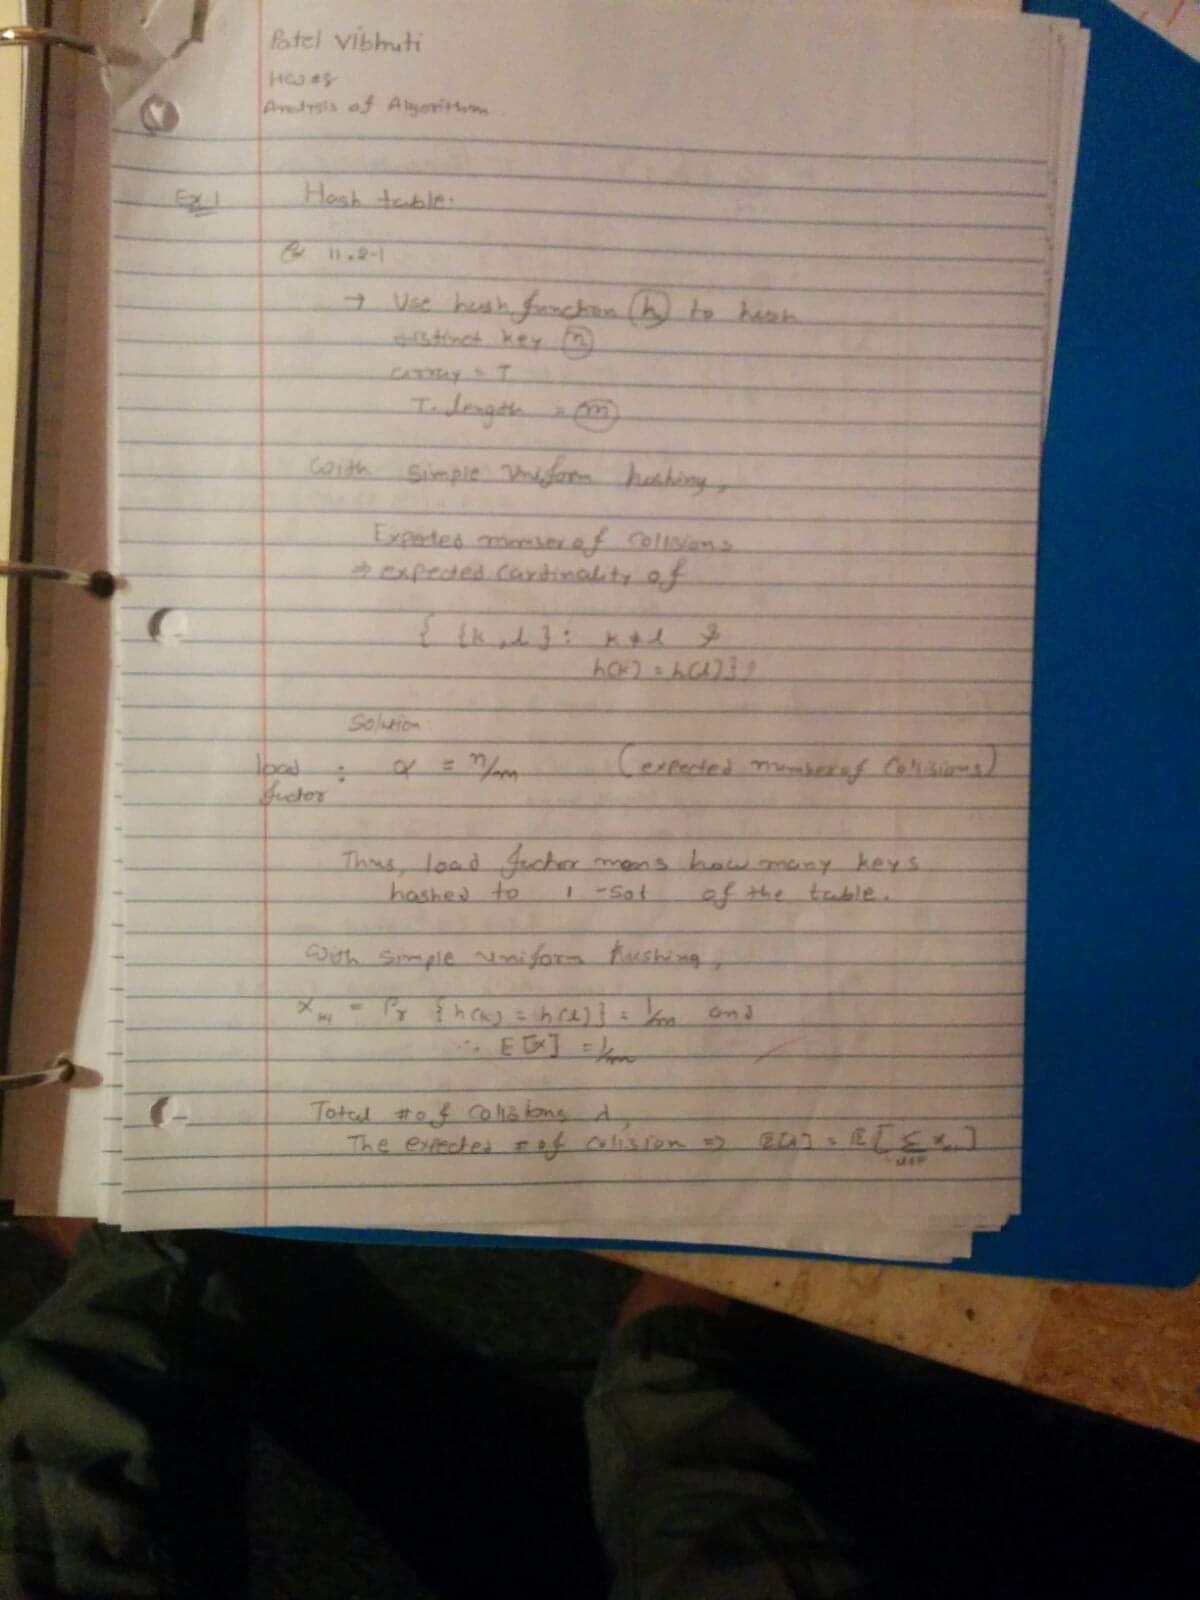 Patel Vibhuti
HW #8
Analysis of Algorithm.
Ex 1 Hash table.
11.2-1
→ Use hash function (h) to hash
distinct key (n)
array = T
T. length = (m)
with simple uniform hashing,
Expected number of collisions
⇒ expected cardinality of
{ {k, l} : k ≠ l &
h(k) = h(l) }
Solution:
load factor : α = n/m (expected number of collisions)
Thus, load factor means how many keys
hashed to 1 - of the table.
with simple uniform hashing,
X = Pr { h(k) = h(l) } = 1/m and
∴ E[X] = 1/m
Total # of collisions
The expected # of collision ⇒ = E [ Σ X ]